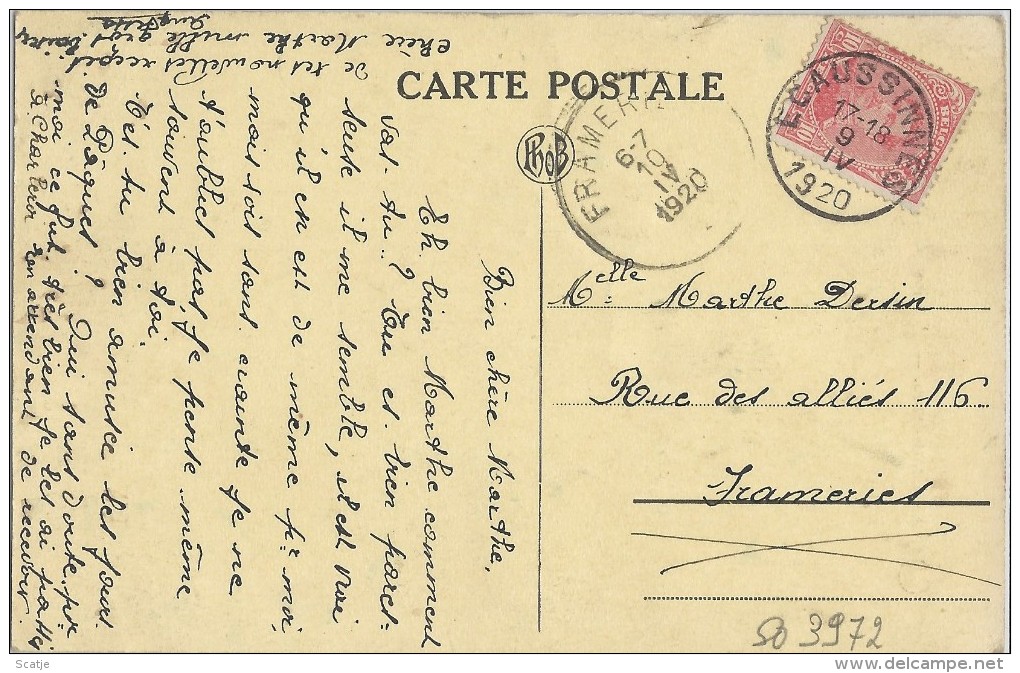 CARTE POSTALE
PhoB
FRAMERIES
6-7
10
IV
1920
ECAUSSINNES
17-18
9
IV
1920
BELG
10
10
Melle Marthe Dersin
Rue des alliés 116
Frameries
Bien chère Marthe,
Eh bien Marthe comment
vas-tu? Tu es bien pares-
seuse il me semble, il est vrai
qu'il en est de même pr moi,
mais sois sans crainte je ne
t'oublies pas, je pense même
souvent à toi.
T'es-tu bien amusée les jours
de Pâques? Oui sans doute, pr
moi ce fut très bien je les ai passés
à Charleroi en attendant de recevoir
de tes nouvelles reçois
chère Marthe mille gros baisers
SO 3972
Scatje
www.delcampe.net